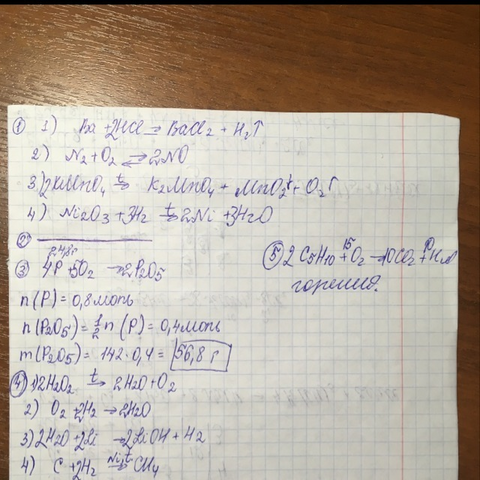 ① 1) Ba + 2HCl → BaCl2 + H2↑
2) N2 + O2 ⇄ 2NO
3) 2KMnO4 t→ K2MnO4 + MnO2 + O2↑
4) Ni2O3 + 3H2 t→ 2Ni + 3H2O
②
③ 4P + 5O2 → 2P2O5
n(P) = 0,8 моль
n(P2O5) = ½ n(P) = 0,4 моль
m(P2O5) = 142·0,4 = 56,8 г
④ 1) 2H2O2 t→ 2H2O + O2
2) O2 + 2H2 → 2H2O
3) 2H2O + 2Li → 2LiOH + H2
4) C + 2H2 Ni,t→ CH4
⑤ 2C5H10 + 15O2 → 10CO2 + 10H2O
горения.